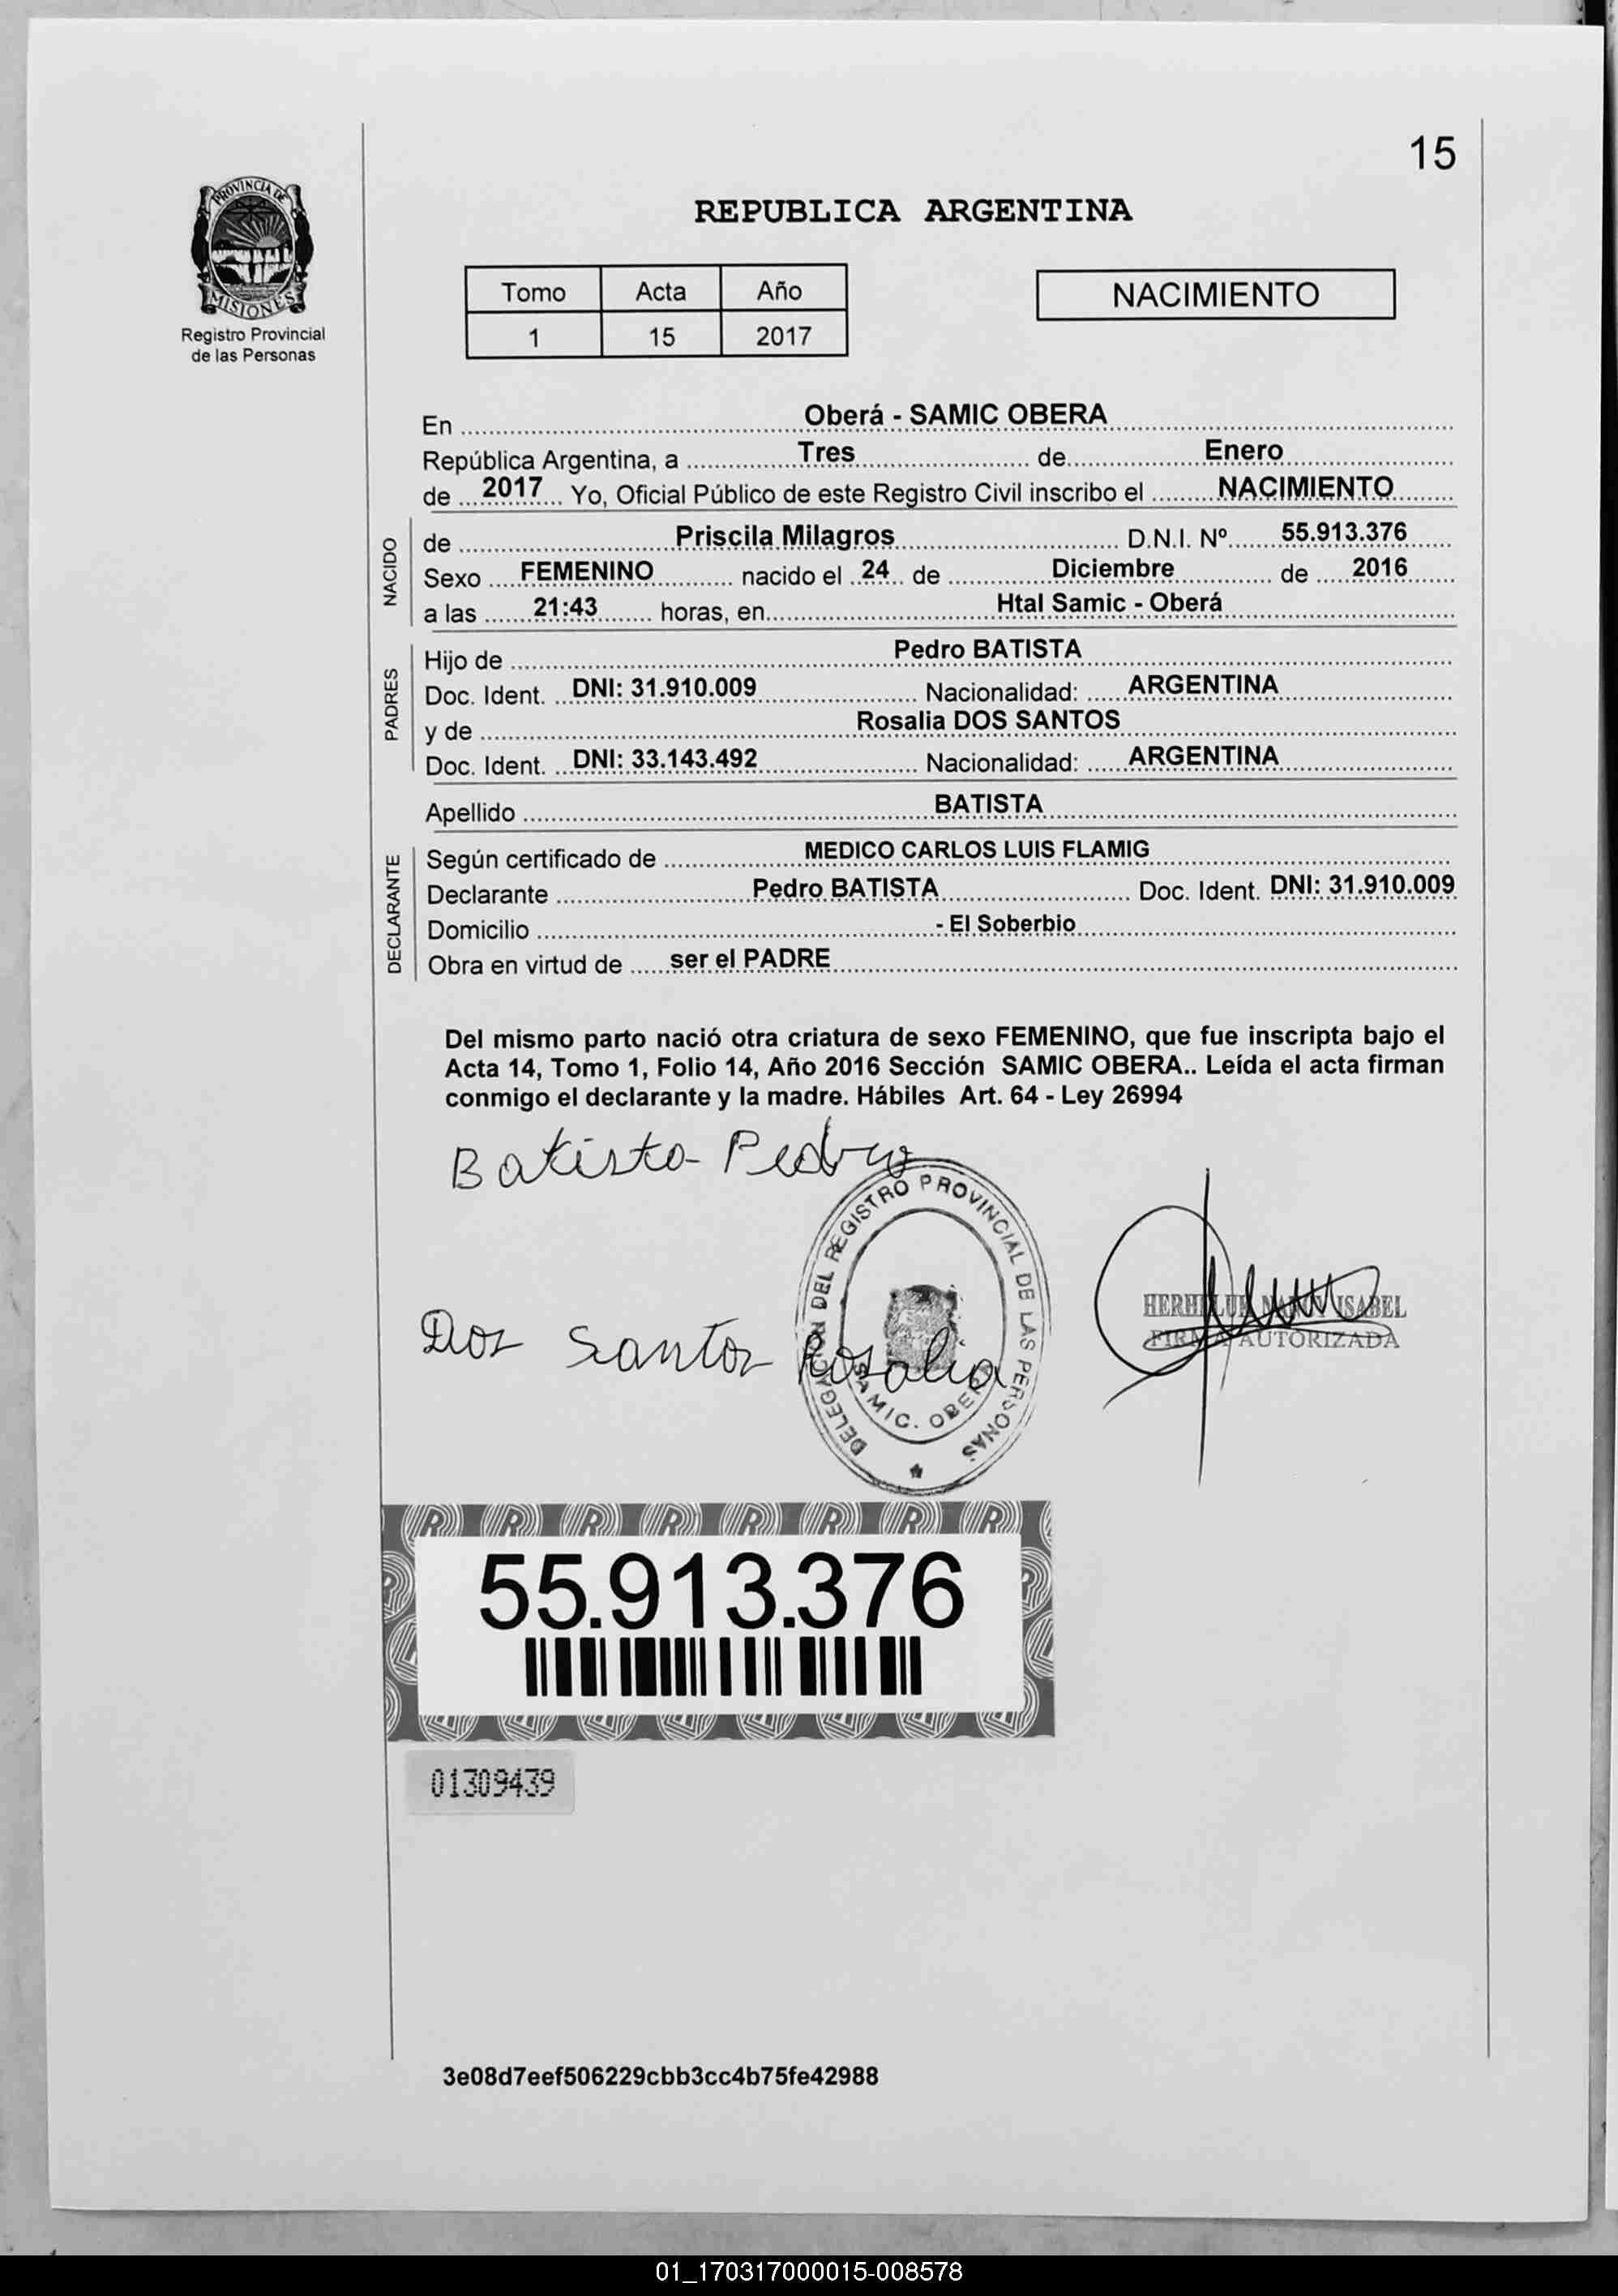 15
PROVINCIA DE
MISIONES
Registro Provincial
de las Personas
REPUBLICA ARGENTINA
Tomo Acta Año
1 15 2017
NACIMIENTO
En Oberá - SAMIC OBERA
República Argentina, a Tres de Enero
de 2017 Yo, Oficial Público de este Registro Civil inscribo el NACIMIENTO
NACIDO
de Priscila Milagros D.N.I. Nº 55.913.376
Sexo FEMENINO nacido el 24 de Diciembre de 2016
a las 21:43 horas, en Htal Samic - Oberá
PADRES
Hijo de Pedro BATISTA
Doc. Ident. DNI: 31.910.009 Nacionalidad: ARGENTINA
y de Rosalia DOS SANTOS
Doc. Ident. DNI: 33.143.492 Nacionalidad: ARGENTINA
Apellido BATISTA
DECLARANTE
Según certificado de MEDICO CARLOS LUIS FLAMIG
Declarante Pedro BATISTA Doc. Ident. DNI: 31.910.009
Domicilio - El Soberbio
Obra en virtud de ser el PADRE
Del mismo parto nació otra criatura de sexo FEMENINO, que fue inscripta bajo el
Acta 14, Tomo 1, Folio 14, Año 2016 Sección SAMIC OBERA.. Leída el acta firman
conmigo el declarante y la madre. Hábiles Art. 64 - Ley 26994
Batista Pedro
DELEGACION DEL REGISTRO PROVINCIAL DE LAS PERSONAS
SAMIC. OBERA
Dos Santos Rosalia
ISABEL
FIRMA AUTORIZADA
55.913.376
01309439
3e08d7eef506229cbb3cc4b75fe42988
01_170317000015-008578